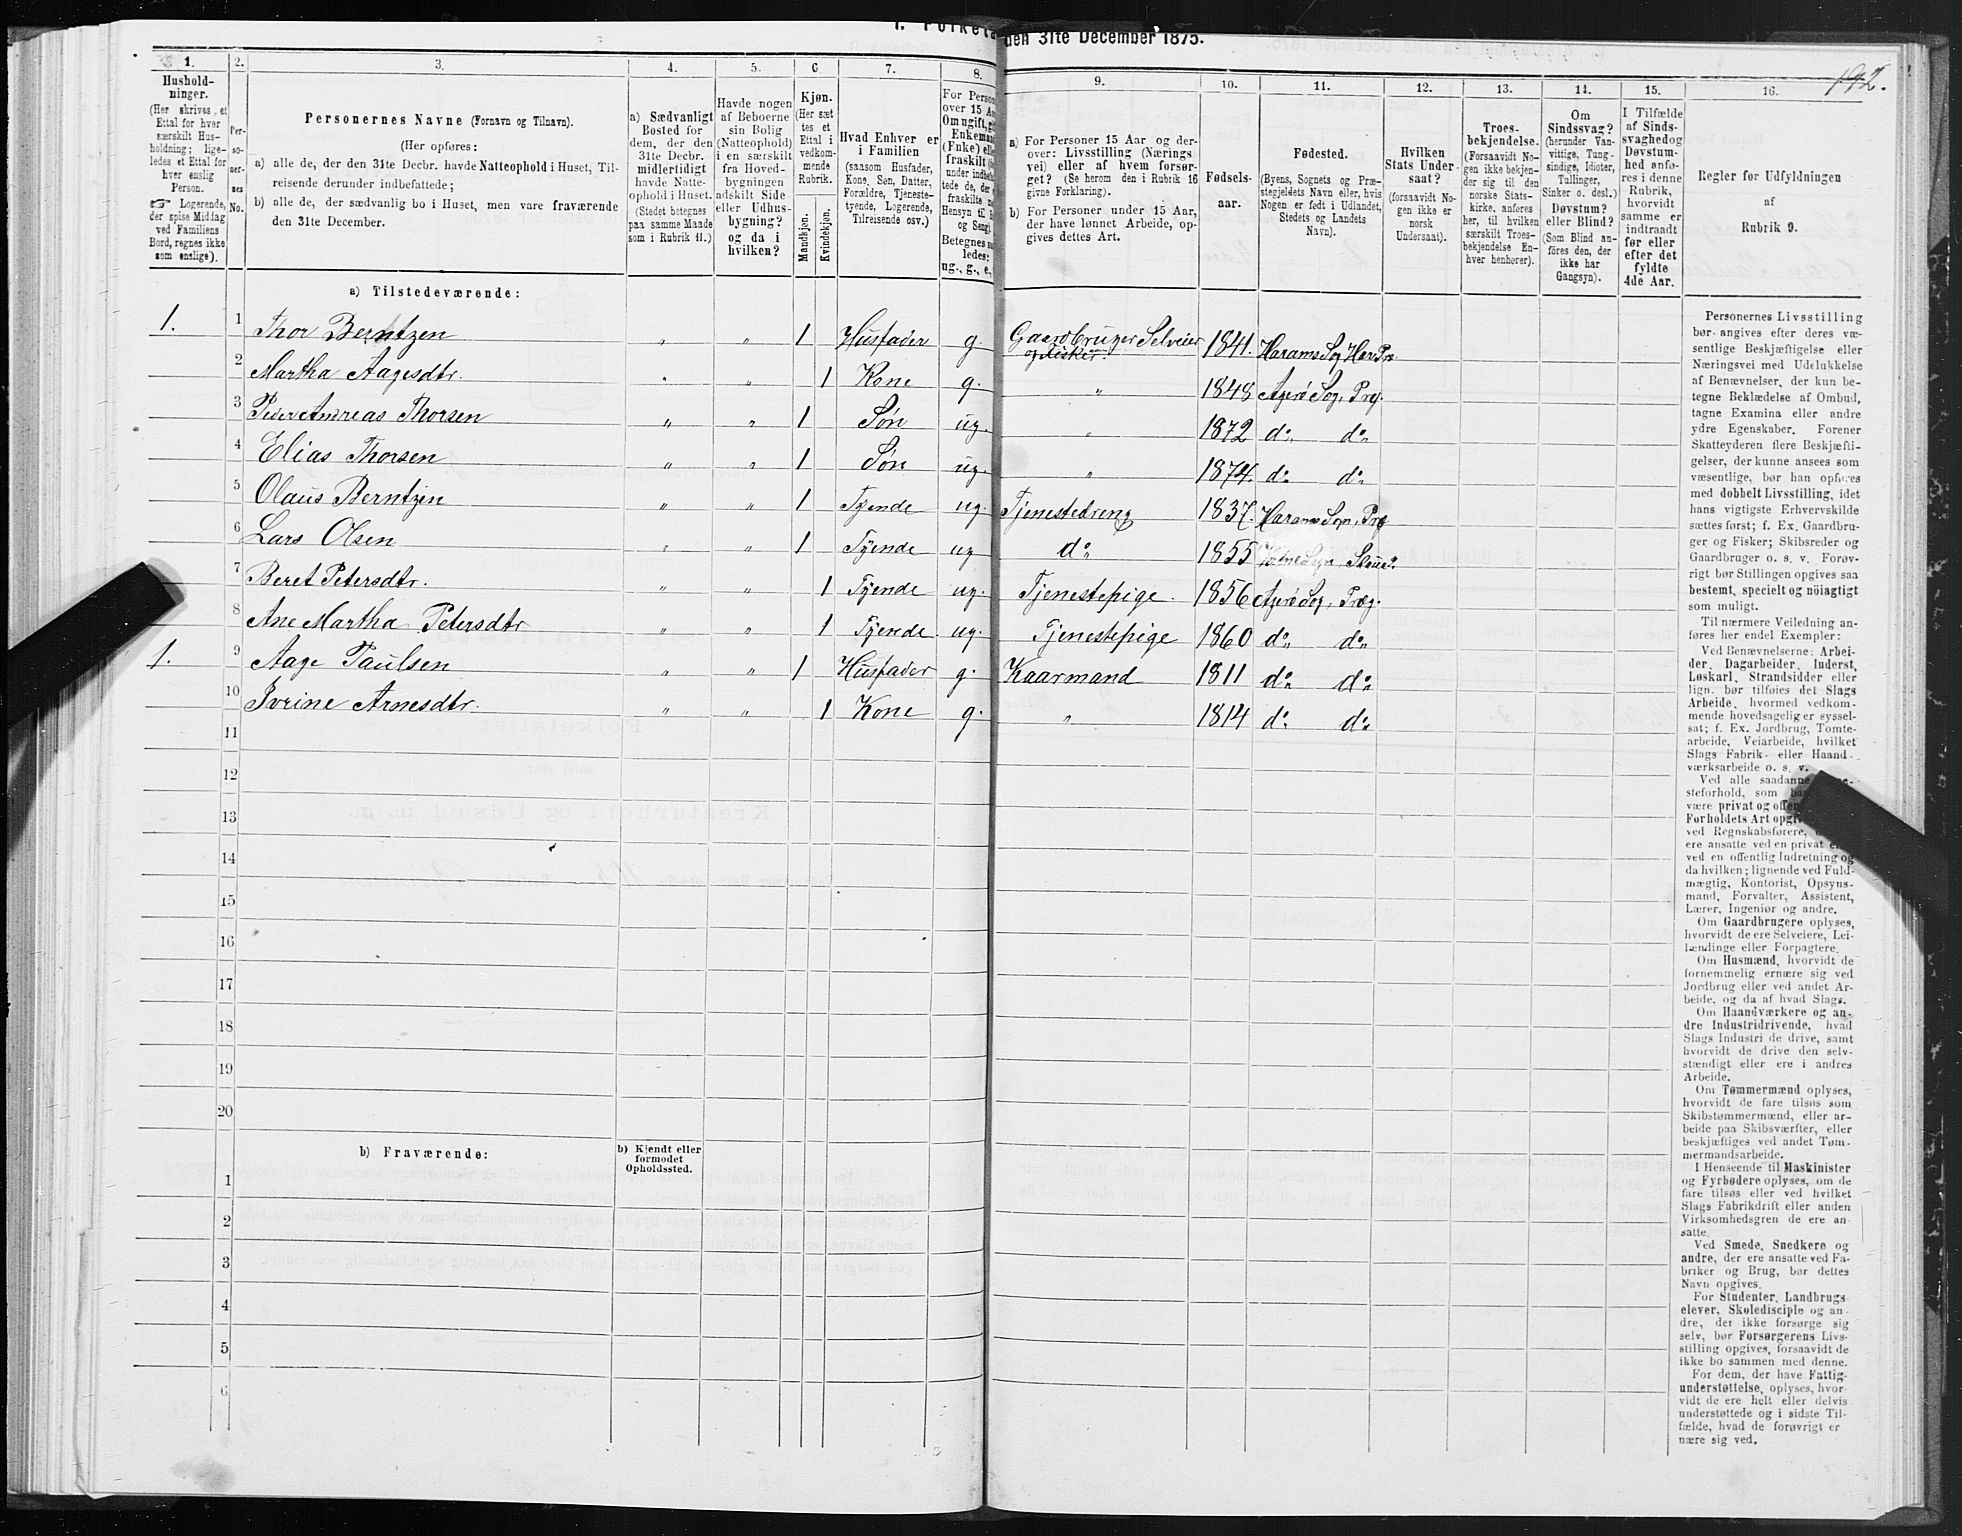 1. Folketæ
den 31te December 1875.
192.
1.
2.
3.
4.
5.
6
7.
8.
9.
10.
11.
12.
13.
14.
15.
16.
Hushold-
ninger.
(Her skrives et
Ettal for hver
særskilt Hus-
holdning; lige-
ledes et Ettal for
hver enslig
Person.
☞ Logerende,
der spise Middag
ved Familiens
Bord, regnes ikke
som enslige).
Per-
so-
ner-
nes
No.
Personernes Navne (Fornavn og Tilnavn).
(Her opføres:
a) alle de, der den 31te Decbr. havde Natteophold i Huset, Til-
reisende derunder indbefattede;
b) alle de, der sædvanlig bo i Huset, men vare fraværende
den 31te December.
a) Sædvanligt
Bosted for
dem, der den
31te Decbr.
midlertidigt
havde Natte-
ophold i Huset.
(Stedet betegnes
paa samme Maade
som i Rubrik 11.)
Havde nogen
af Beboerne
sin Bolig
(Natteophold)
i en særskilt
fra Hoved-
bygningen
adskilt Side
eller Udhus-
bygning?
og da i
hvilken?
Kjøn.
(Her sæt
tes et
Ettal i
vedkom-
mende
Rubrik.
Mandkjøn.
Kvindekjøn.
Hvad Enhver er
i Familien
(saasom Husfader,
Kone, Søn, Datter,
Forældre, Tjeneste-
tyende, Logerende,
Tilreisende osv.)
For Person
over 15 Aa
Om ugift, gi
Enkeman
(Enke) elle
fraskilt
under indbefat
tede de, der e
fraskilte
Hensyn til B
og Seng).
Betegnes saa
ledes:
ug., g., e.,
a) For Personer 15 Aar og der-
over: Livsstilling (Nærings
vei) eller af hvem forsør-
get? (Se herom den i Rubrik 16
givne Forklaring).
b) For Personer under 15 Aar,
der have lønnet Arbeide, op-
gives dettes Art.
Fødsels-
aar.
Fødested.
(Byens, Sognets og Præ-
stegjeldets Navn eller, hvis
Nogen er født i Udlandet,
Stedets og Landets
Navn).
Hvilken
Stats Under-
saat?
(forsaavidt No-
gen ikke er
norsk
Undersaat).
Troes-
bekjendelse.
(Forsaavidt No-
gen ikke bekjen-
der sig til den
norske Stats-
kirke, anføres
her, til hvilken
særskilt Troes-
bekjendelse En-
hver henhører).
Om
Sindssvag?
(herunder Van-
vittige, Tung-
sindige, Idioter,
Tullinger,
Sinker o. desl.)
Døvstum?
eller Blind?
(Som Blind an-
føres den, der
ikke har
Gangsyn).
I Tilfælde
af Sinds-
svaghed og
Døvstum-
hed anfø-
res i denne
Rubrik,
hvorvidt
samme er
indtraadt
før eller
efter det
fyldte
4de Aar.
Regler for Udfyldningen
af
Rubrik 9.
a) Tilstedeværende:
1. 1 Thor Berntzen „ „ 1 Husfader g. Gaardbruger Selveier og Fisker. 1841. Harams Sog Har Pr.
2 Martha Aagesdtr. „ „ 1 Kone g. „ 1848 Agerø Sog, Prg.
3 Peder Andreas Thorsen „ „ 1 Søn ug. „ 1872 do do
4 Elias Thorsen „ „ 1 Søn ug. „ 1874. do do
5 Olaus Berntzen „ „ 1 Tyende ug. Tjenestedreng 1837. Harams Sogn, Prg
6 Lars Olsen „ „ 1 Tyende ug do 1855 Sogn,
7 Beret Petersdtr. „ „ 1 Tyende ug. Tjenestepige. 1856 Agerø Sog, Præg.
8 Ane Martha Petersdtr „ „ 1 Tyende. ug. Tjenestepige 1860 do do
1. 9 Aage Paulsen „ „ 1 Husfader g. Kaarmand 1811 do do
10 Ivrine Arnesdtr. „ „ 1 Kone g. „ 1814 do do
11
12
13
14
15
16
17
18
19
20
b) Fraværende:
b) Kjendt eller
formodet
Opholdssted.
1
2
3
4
5
6
Personernes Livsstilling
bør angives efter deres væ-
sentlige Beskjæftigelse eller
Næringsvei med Udelukkelse
af Benævnelser, der kun be-
tegne Beklædelse af Ombud,
tagne Examina eller andre
ydre Egenskaber. Forener
Skatteyderen flere Beskjæfti-
gelser, der kunne ansees som
væsentlige, bør han opføres
med dobbelt Livsstilling, idet
hans vigtigste Erhvervskilde
sættes først; f. Ex. Gaardbru-
ger og Fisker; Skibsreder og
Gaardbruger o. s. v. Forøv-
rigt bør Stillingen opgives saa
bestemt, specielt og nöiagtigt
som muligt.
Til nærmere Veiledning an-
føres her endel Exempler:
Ved Benævnelserne: Arbei-
der, Dagarbeider, Inderst,
Løskarl, Strandsidder eller
lign. bør tilføies det Slags
Arbeide, hvormed vedkom-
mende hovedsagelig er syssel-
sat; f. Ex. Jordbrug, Tomte-
arbeide, Veiarbeide, hvilket
Slags Fabrik- eller Haand-
værksarbeide o. s. v.
Ved alle saadanne
steforhold, som
være privat og offen
Forholdets Art opgiv
ved Regnskabsførere,
ere ansatte ved en privat e
ved en offentlig Indretning og
da hvilken; lignende ved Fuld-
mægtig, Kontorist, Opsyns-
mand, Forvalter, Assistent,
Lærer, Ingeniør og andre.
Om Gaardbrugere oplyses,
hvorvidt de ere Selveiere, Lei-
lændinge eller Forpagtere.
Om Husmænd, hvorvidt de
fornemmelig ernære sig ved
Jordbrug eller ved andet Ar-
beide, og da af hvad Slags.
Om Haandværkere og an-
dre Industridrivende, hvad
Slags Industri de drive, samt
hvorvidt de drive den selv-
stændigt eller ere i andres
Arbeide.
Om Tømmermænd oplyses,
hvorvidt de fare tilsøs som
Skibstømmermænd, eller ar-
beide paa Skibsværfter, eller
beskjæftiges ved andet Tøm-
mermandsarbeide.
I Henseende til Maskinister
og Fyrbødere oplyses, om de
fare tilsøs eller ved hvilket
Slags Fabrikdrift eller anden
Virksomhedsgren de ere an-
satte.
Ved Smede, Snedkere og
andre, der ere ansatte ved Fa-
briker og Brug, bør dettes
Navn opgives.
For Studenter, Landbrugs-
elever, Skoledisciple og an-
dre, der ikke forsørge sig
selv, bør Forsørgerens Livs-
stilling opgives, forsaavidt de
ikke bo sammen med denne.
For dem, der have Fattig-
understøttelse, oplyses, hvor-
vidt de ere helt eller delvis
understøttede og i sidste Til-
fælde, hvad de forøvrigt er-
nære sig ved.